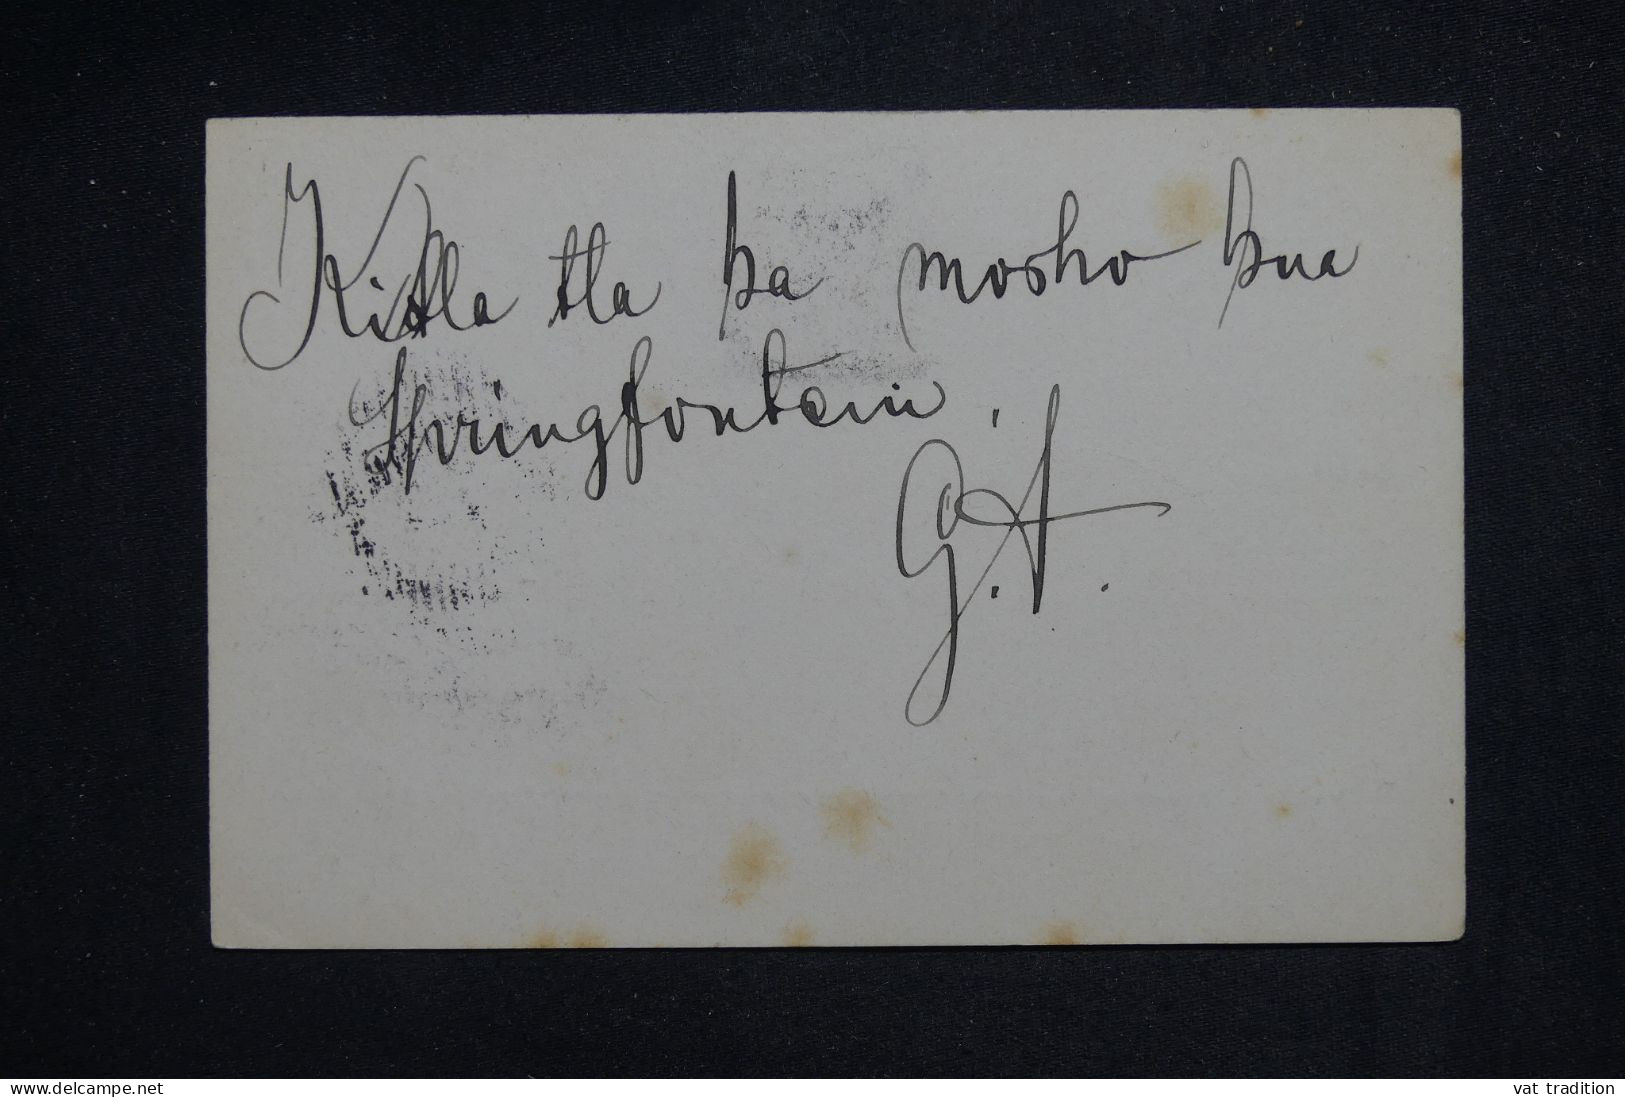 Ki tla tla ka mosho kua
Springfontein.
G. A.
www.delcampe.net
vat tradition